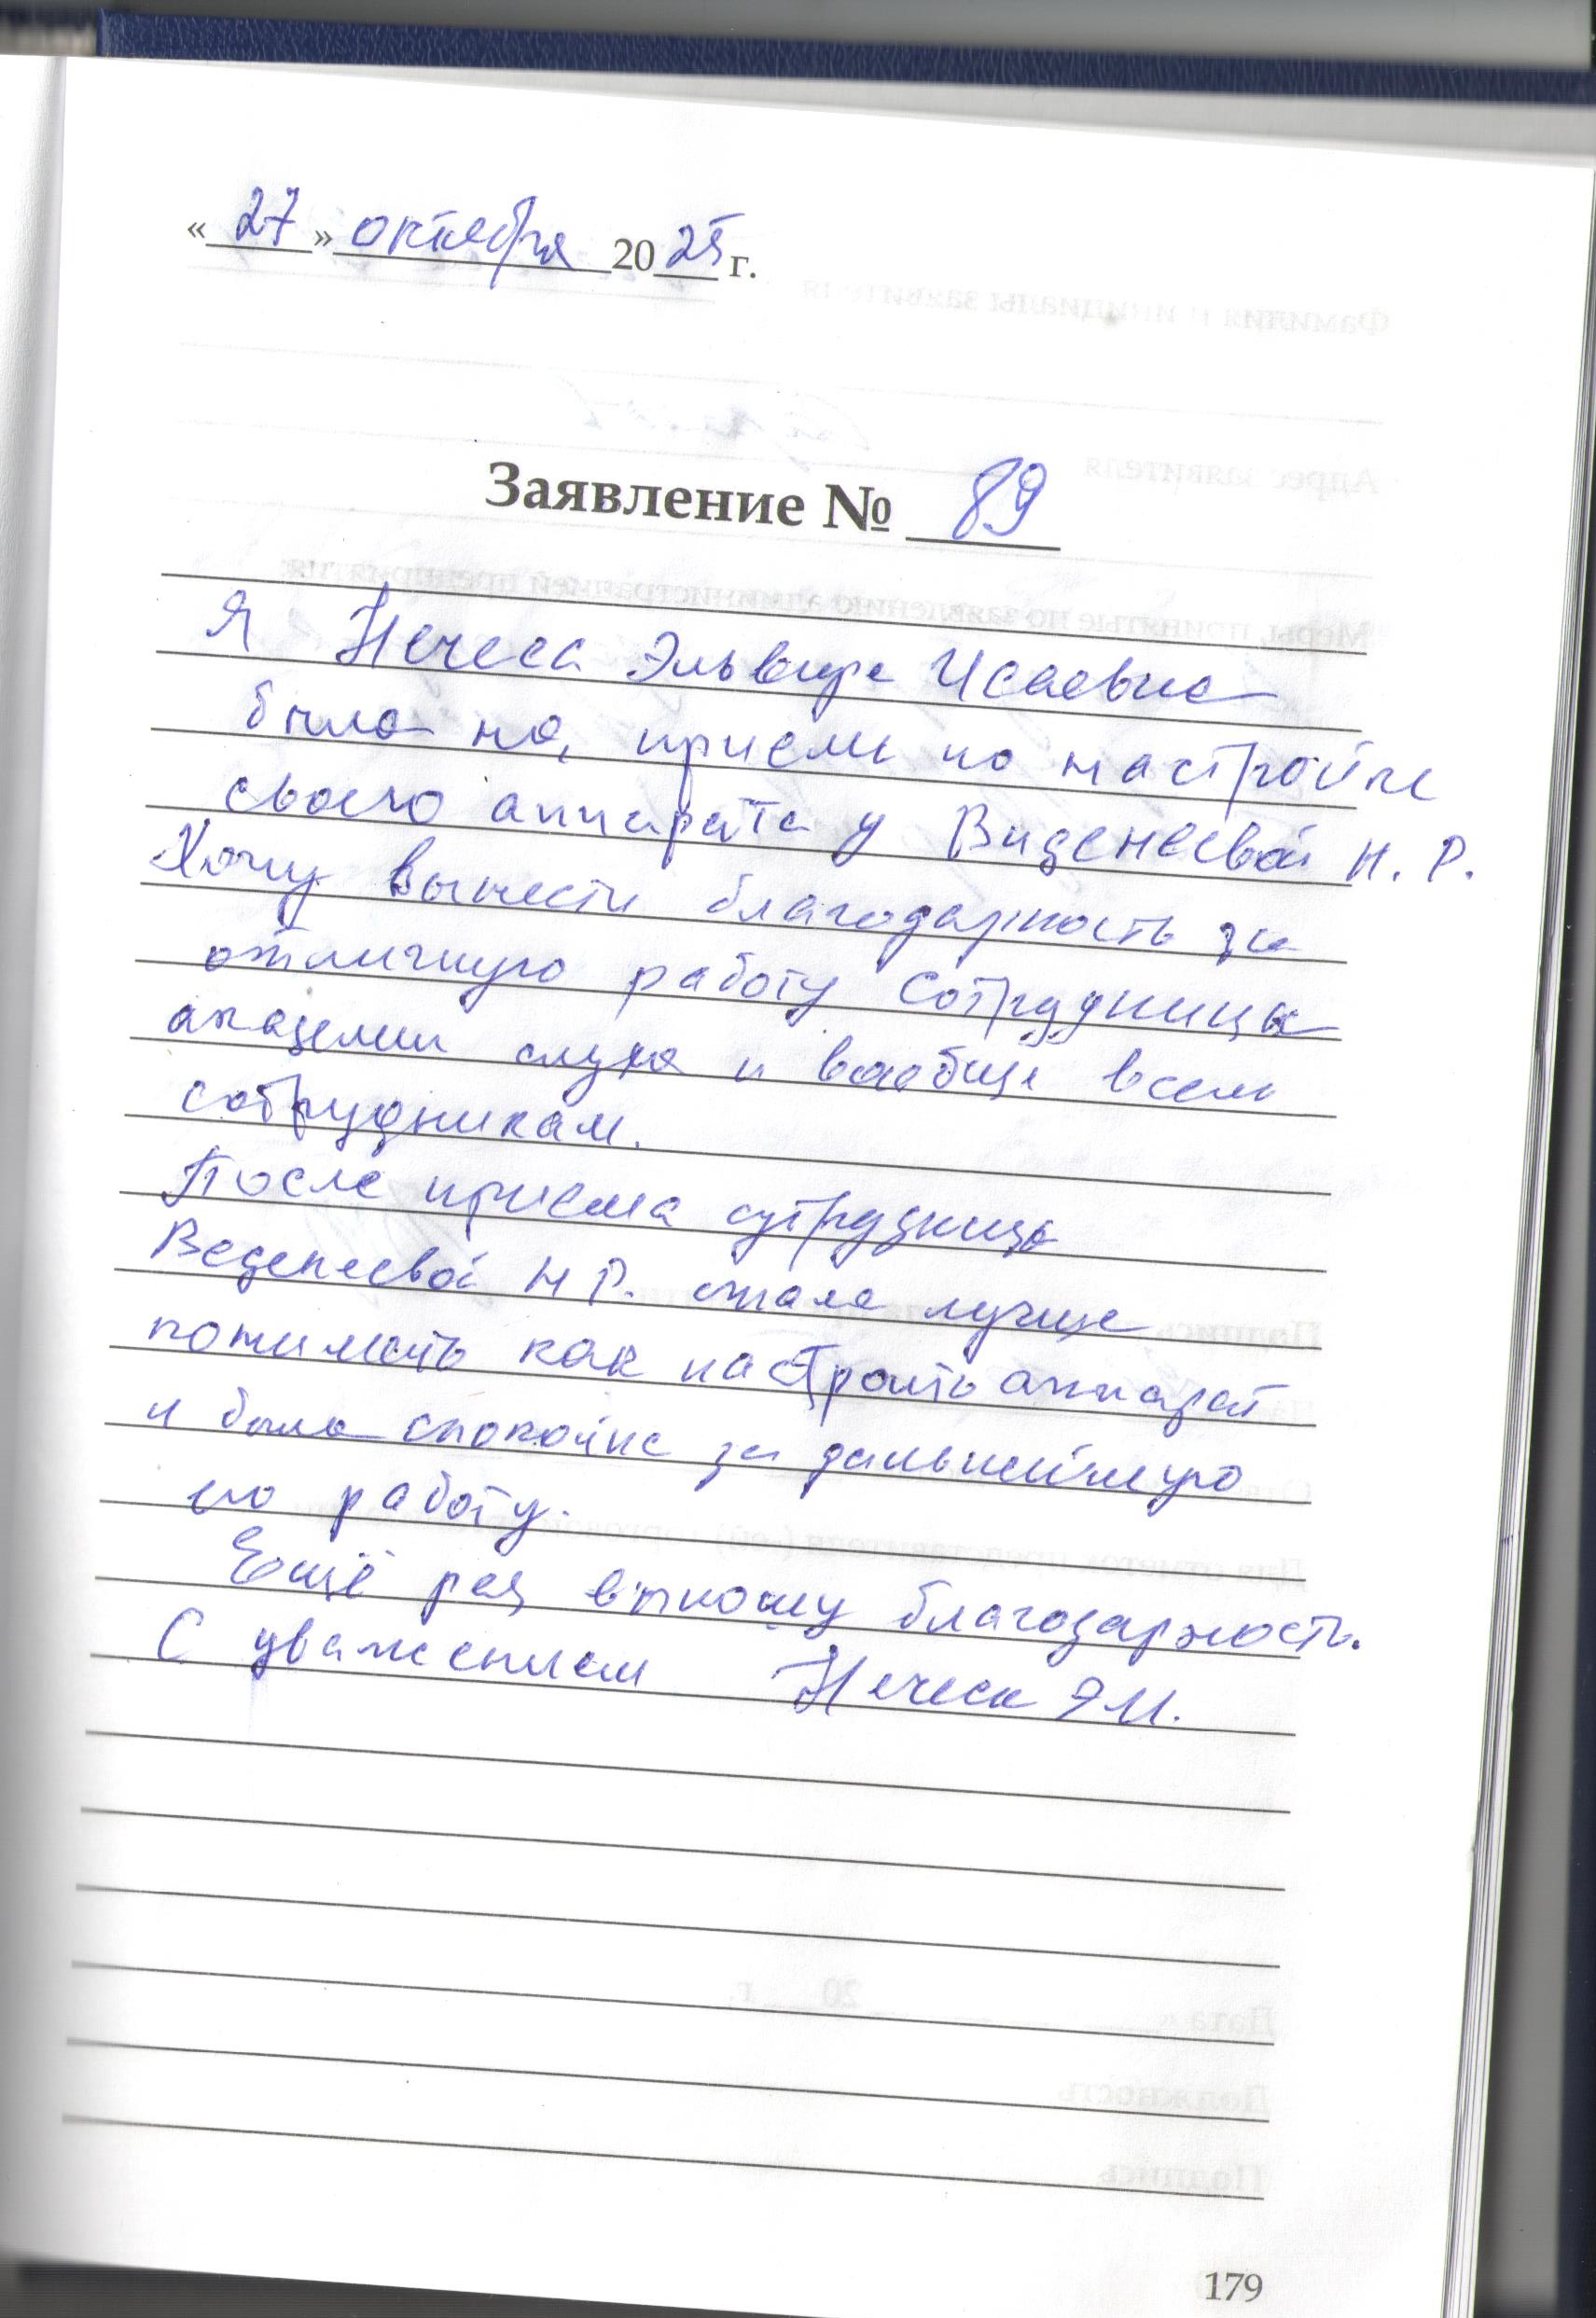 «27» октября 2025 г.
Заявление № 89
Я Нечеса Эльвира Исаевна
была на приеме по настройке
своего аппарата у Виденеевой Н. Р.
Хочу вынести благодарность за
отличную работу сотрудницы
академии слуха и вообще всем
сотрудникам.
После приема сутрудницы
Веденеевой Н Р. стала лучше
понимать как настроить аппарат
и была спокойна за дальнейшую
его работу.
Ещё раз выношу благодарность.
С уважением Нечеса Э И.
179